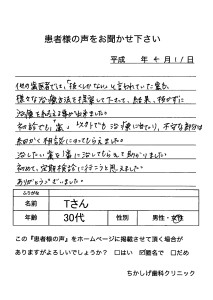 患者様の声をお聞かせ下さい
平成 年 4月11日
他の歯医者では、「抜くしかない」と言われていた歯も、
様々な治療方法を提案して下さって、結果、抜かずに
治療を終える事が出来ました。
初診でも、以外でも治療に当たり、不安な部分は
細かく相談にのってもらえました。
治したい歯も1番に治してもらえて助かりました
初めて、定期検診に行こうと思えました。
ありがとうございました。
ふりがな
名前 Tさん
年齢 30代 性別 男性・女性
この『患者様の声』をホームページに掲載させて頂く場合が
ありますがよろしいでしょうか? □はい ☑匿名で □だめ
ちかしげ歯科クリニック